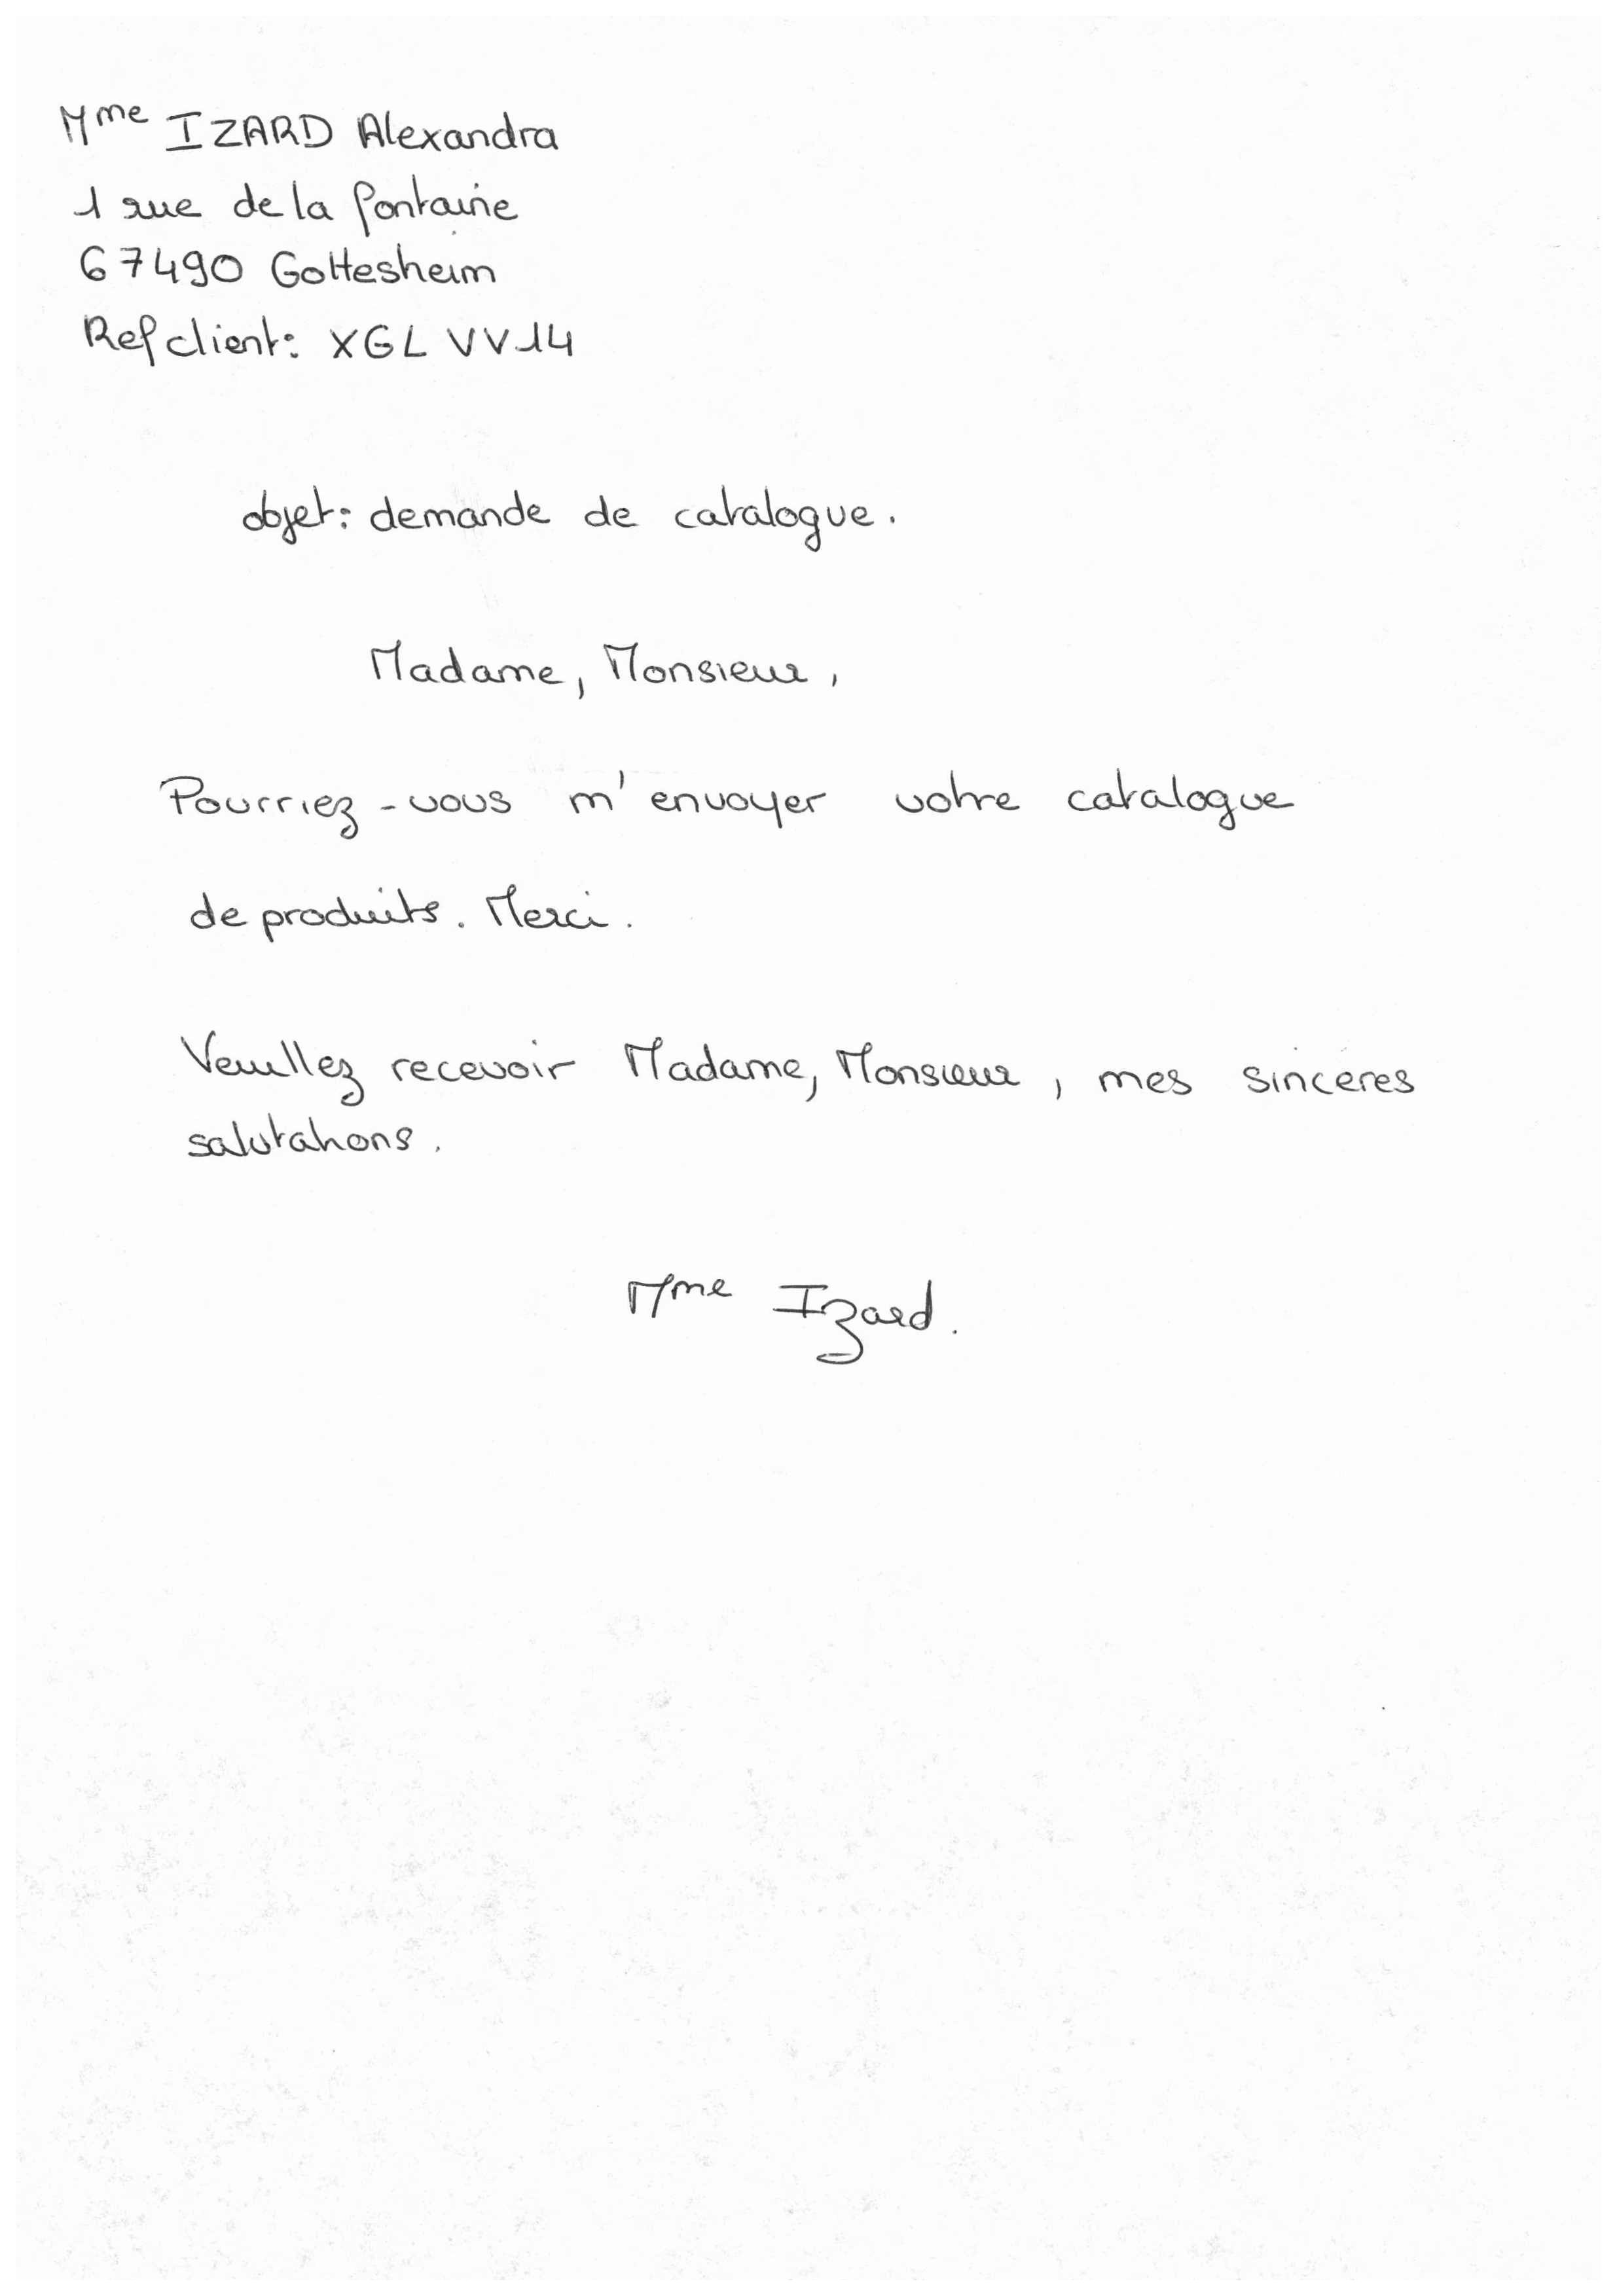 Mme IZARD Alexandra
1 rue de la fontaine
67490 Gottesheim
Ref client: XGLVV14
objet: demande de catalogue.
Madame, Monsieur,
Pourriez-vous m'envoyer votre catalogue
de produits. Merci.
Veuillez recevoir Madame, Monsieur, mes sinceres
salutations.
Mme Izard.